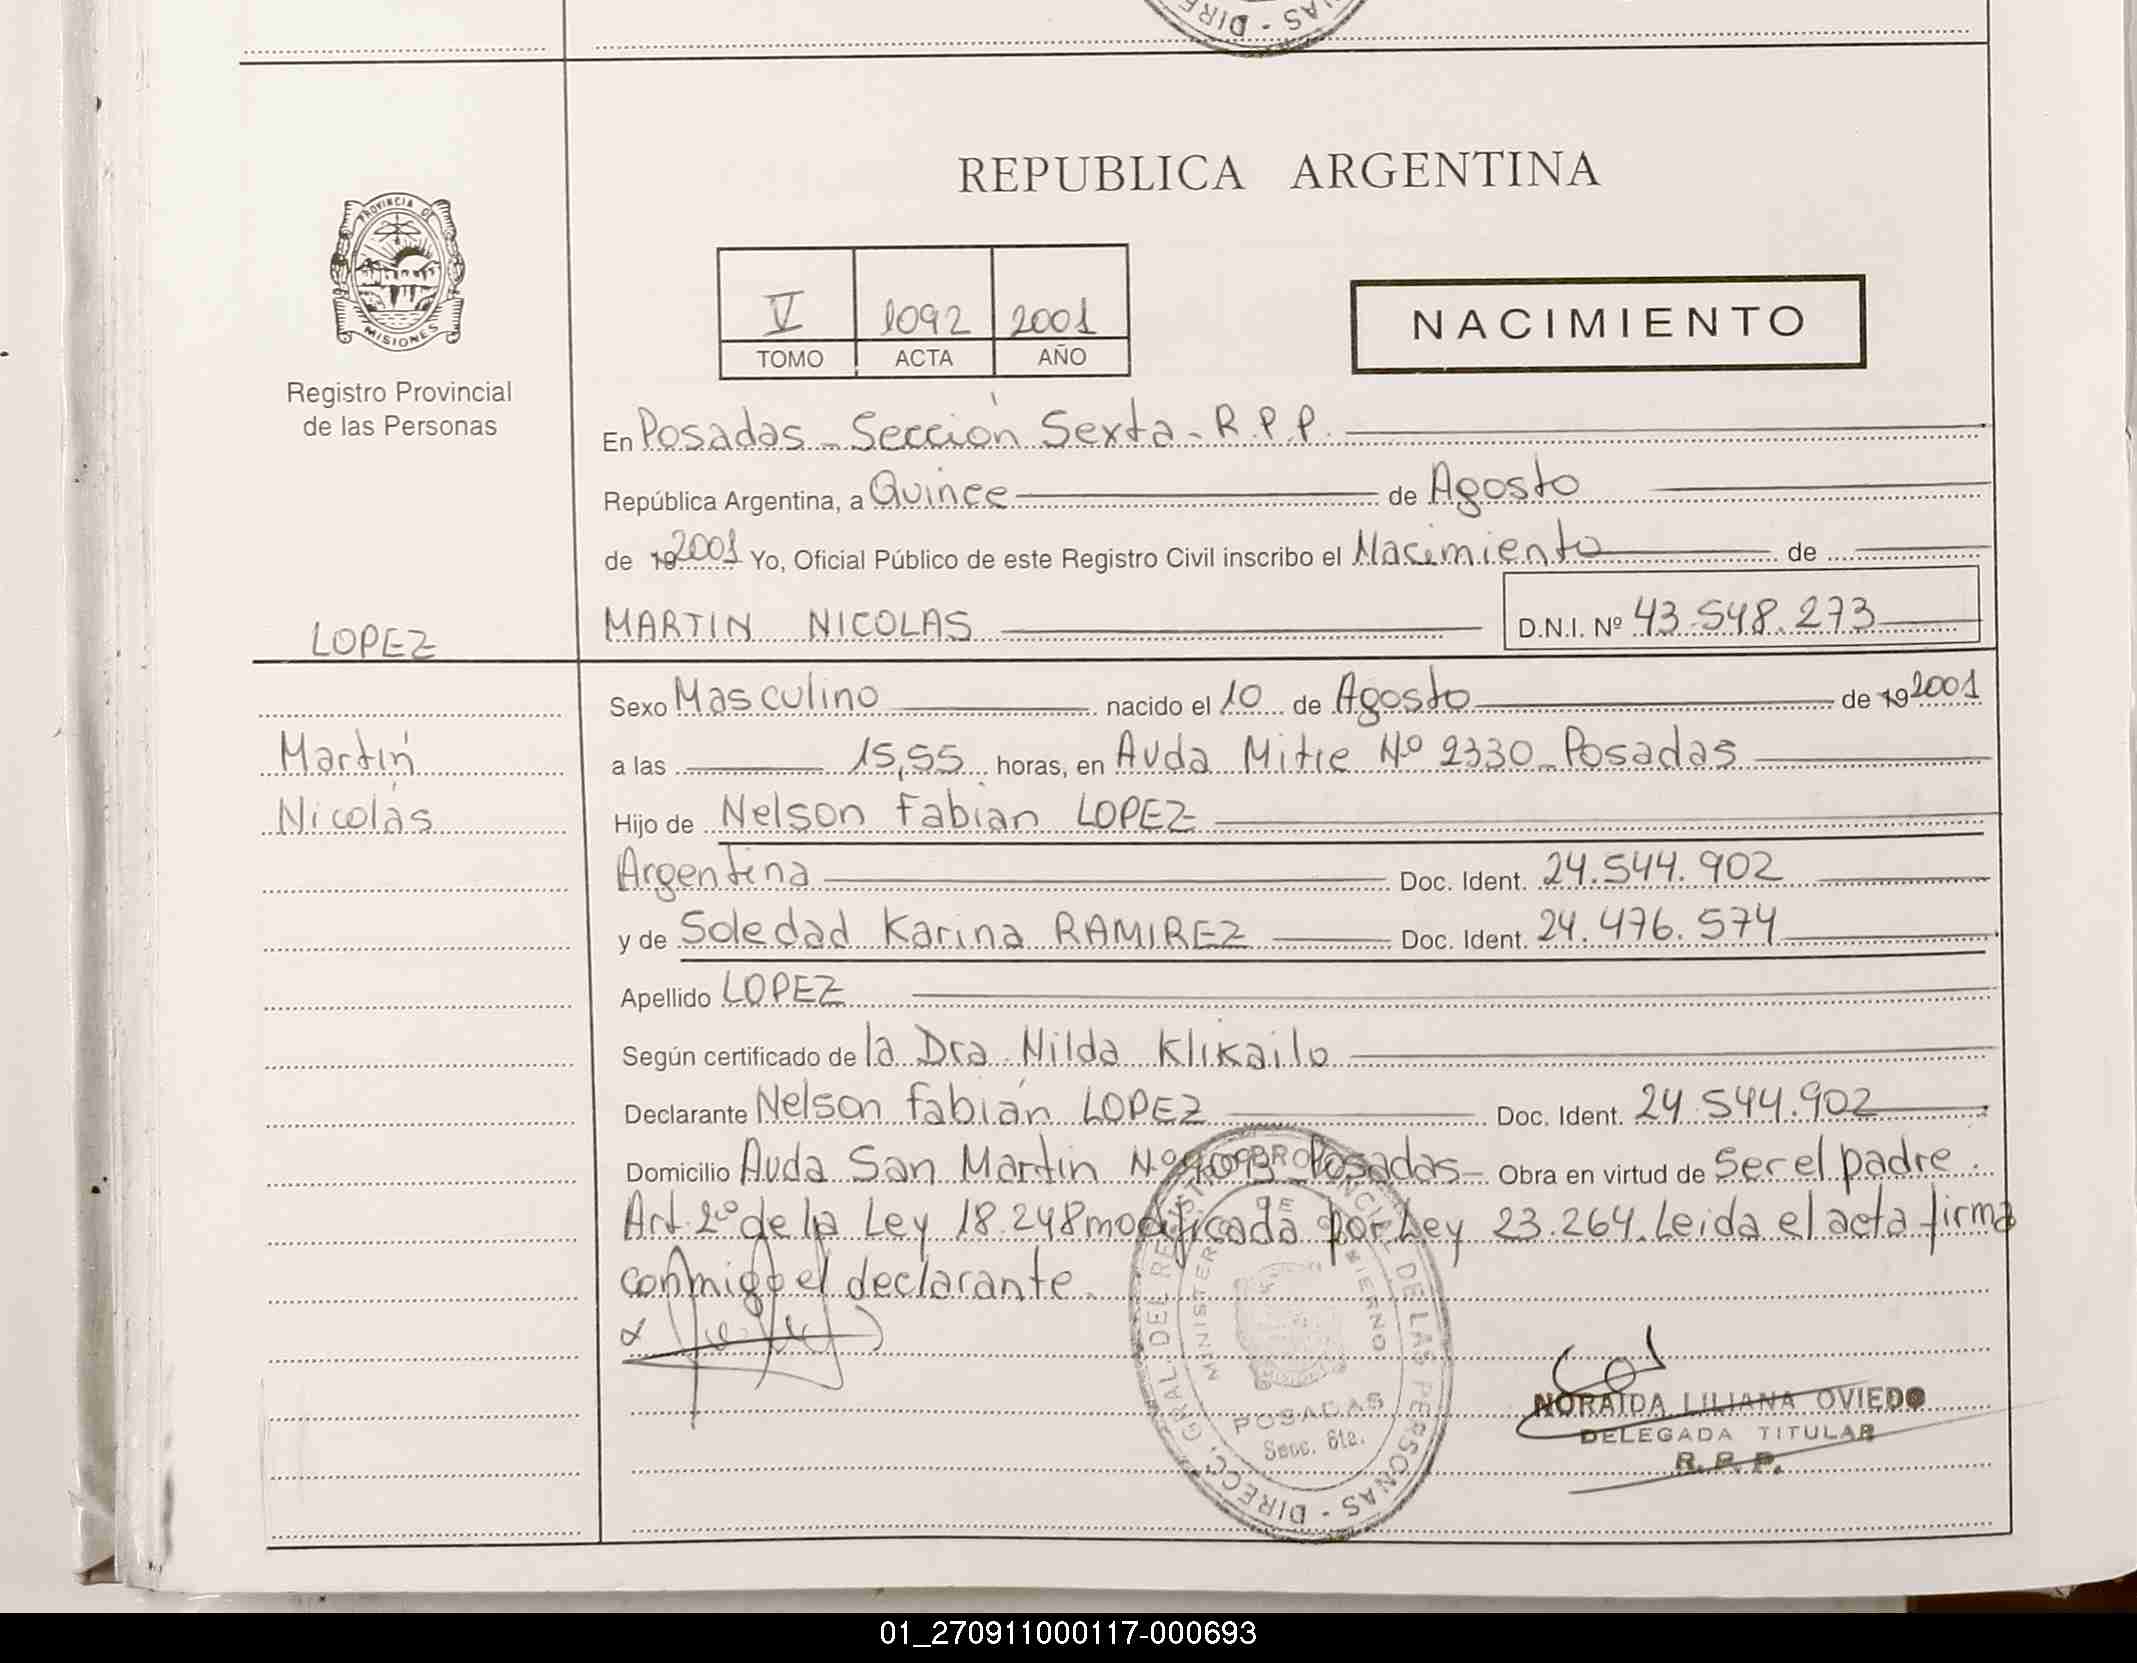 REPUBLICA ARGENTINA
PROVINCIA DE
MISIONES
Registro Provincial
de las Personas
V 1092 2001
TOMO ACTA AÑO
NACIMIENTO
En Posadas - Sección Sexta - R.P.P.
República Argentina, a Quince de Agosto
de 192001 Yo, Oficial Público de este Registro Civil inscribo el Nacimiento de
LOPEZ
MARTIN NICOLAS D.N.I. Nº 43.548.273
Sexo Masculino nacido el 10 de Agosto de 192001
Martín
a las 15,55 horas, en Avda Mitre Nº 2330 - Posadas
Nicolás
Hijo de Nelson Fabian LOPEZ
Argentina Doc. Ident. 24.544.902
y de Soledad Karina RAMIREZ Doc. Ident. 24.476.574
Apellido LOPEZ
Según certificado de la Dra. Nilda Klikailo
Declarante Nelson Fabián LOPEZ Doc. Ident. 24.544.902
Domicilio Avda San Martin Nº Posadas - Obra en virtud de Ser el padre.
Art. 2º de la Ley 18.248 modificada por Ley 23.264. Leida el acta firma
conmigo el declarante.
DIRECC. GRAL. DEL REGISTRO PROVINCIAL DE LAS PERSONAS
MINISTERIO DE GOBIERNO
POSADAS
Secc. 6ta.
NORAIDA LILIANA OVIEDO
DELEGADA TITULAR
R. P. P.
01_270911000117-000693